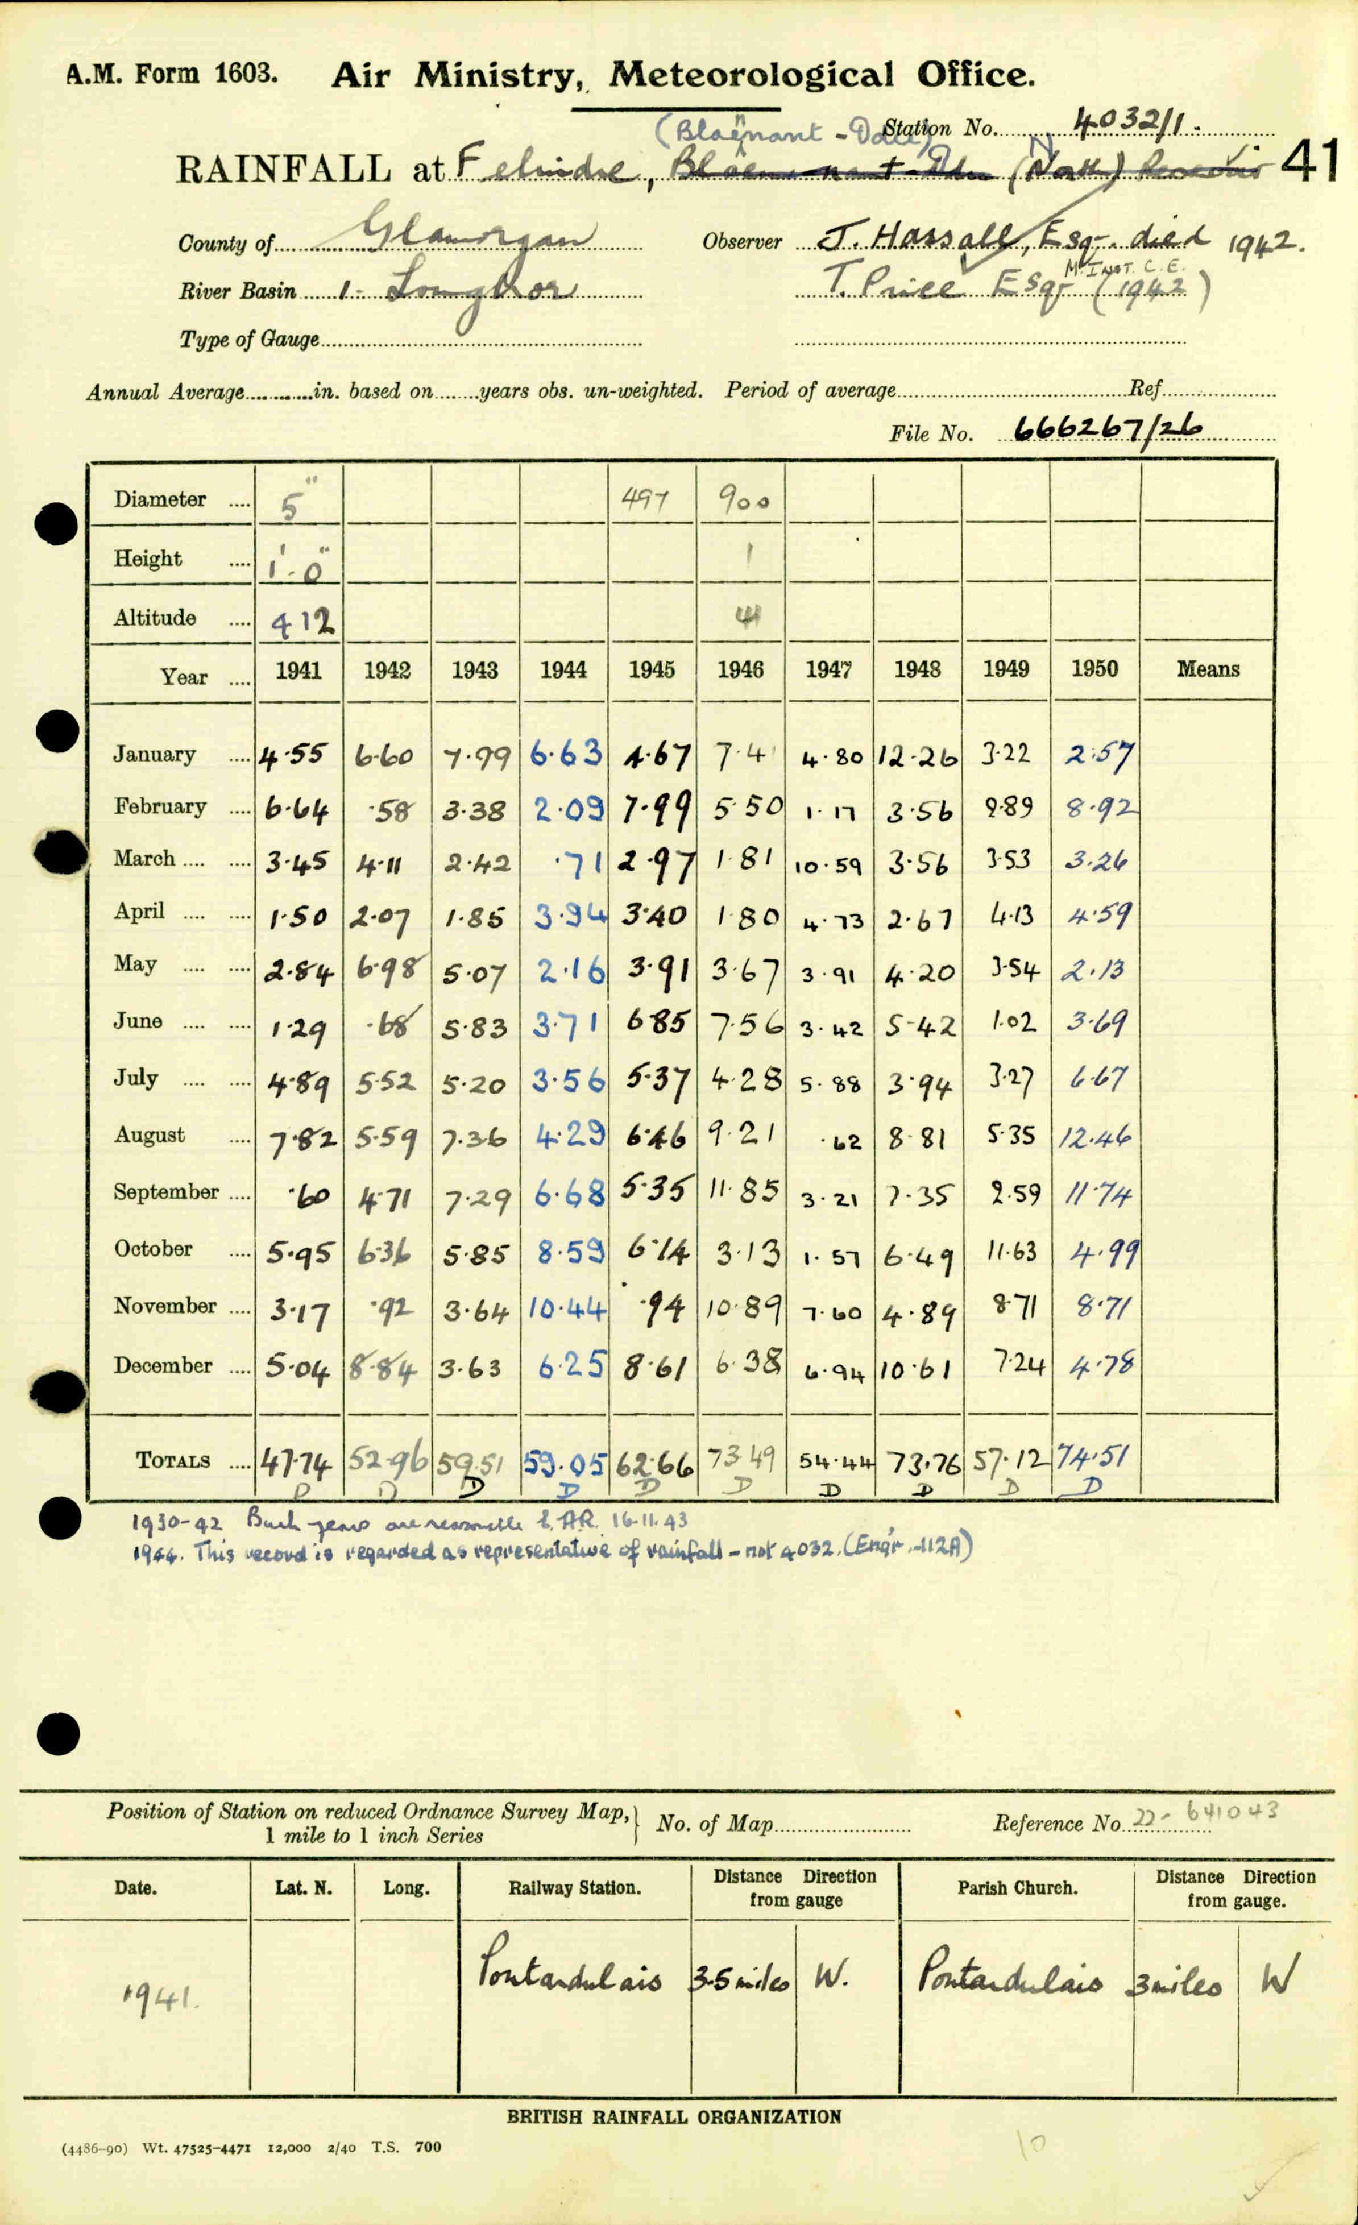 A.M. Form 1603. Air Ministry, Meteorological Office.
(Blaenant - Ddu) Station No. 4032/1.
RAINFALL at Felindre, (North) 41
County of Glamorgan Observer J. Hassall, Esq. died 1942.
River Basin 1 - Loughor T. Price Esq M.INST.C.E. (1942)
Type of Gauge
Annual Average in. based on years obs. un-weighted. Period of average Ref.
File No. 666267/26
Diameter 5" 497 900
Height 1'-0" 1
Altitude 412
Year 1941 1942 1943 1944 1945 1946 1947 1948 1949 1950 Means
January 4.55 6.60 7.99 6.63 4.67 7.41 4.80 12.26 3.22 2.57
February 6.64 .58 3.38 2.09 7.99 5.50 1.17 3.56 2.89 8.92
March 3.45 4.11 2.42 .71 2.97 1.81 10.59 3.56 3.53 3.26
April 1.50 2.07 1.85 3.94 3.40 1.80 4.73 2.67 4.13 4.59
May 2.84 6.98 5.07 2.16 3.91 3.67 3.91 4.20 3.54 2.13
June 1.29 .68 5.83 3.71 6.85 7.56 3.42 5.42 1.02 3.69
July 4.89 5.52 5.20 3.56 5.37 4.28 5.88 3.94 3.27 6.67
August 7.82 5.59 7.36 4.29 6.46 9.21 .62 8.81 5.35 12.46
September .60 4.71 7.29 6.68 5.35 11.85 3.21 7.35 2.59 11.74
October 5.95 6.36 5.85 8.59 6.14 3.13 1.57 6.49 11.63 4.99
November 3.17 .92 3.64 10.44 .94 10.89 7.60 4.89 8.71 8.71
December 5.04 8.84 3.63 6.25 8.61 6.38 6.94 10.61 7.24 4.78
TOTALS 47.74 52.96 59.51 59.05 62.66 73.49 54.44 73.76 57.12 74.51
D D D D D D D D D D
1930-42 Both years are reasonable 16.11.43
1944. This record is regarded as representative of rainfall - not 4032. (Engr. -112A)
Position of Station on reduced Ordnance Survey Map, No. of Map Reference No. 22- 641043
1 mile to 1 inch Series
Date. Lat. N. Long. Railway Station. Distance from gauge Direction Parish Church. Distance from gauge. Direction
1941. Pontardulais 3.5 miles W. Pontardulais 3 miles W
BRITISH RAINFALL ORGANIZATION
(4486-90) Wt. 47525-4471 12,000 2/40 T.S. 700
10